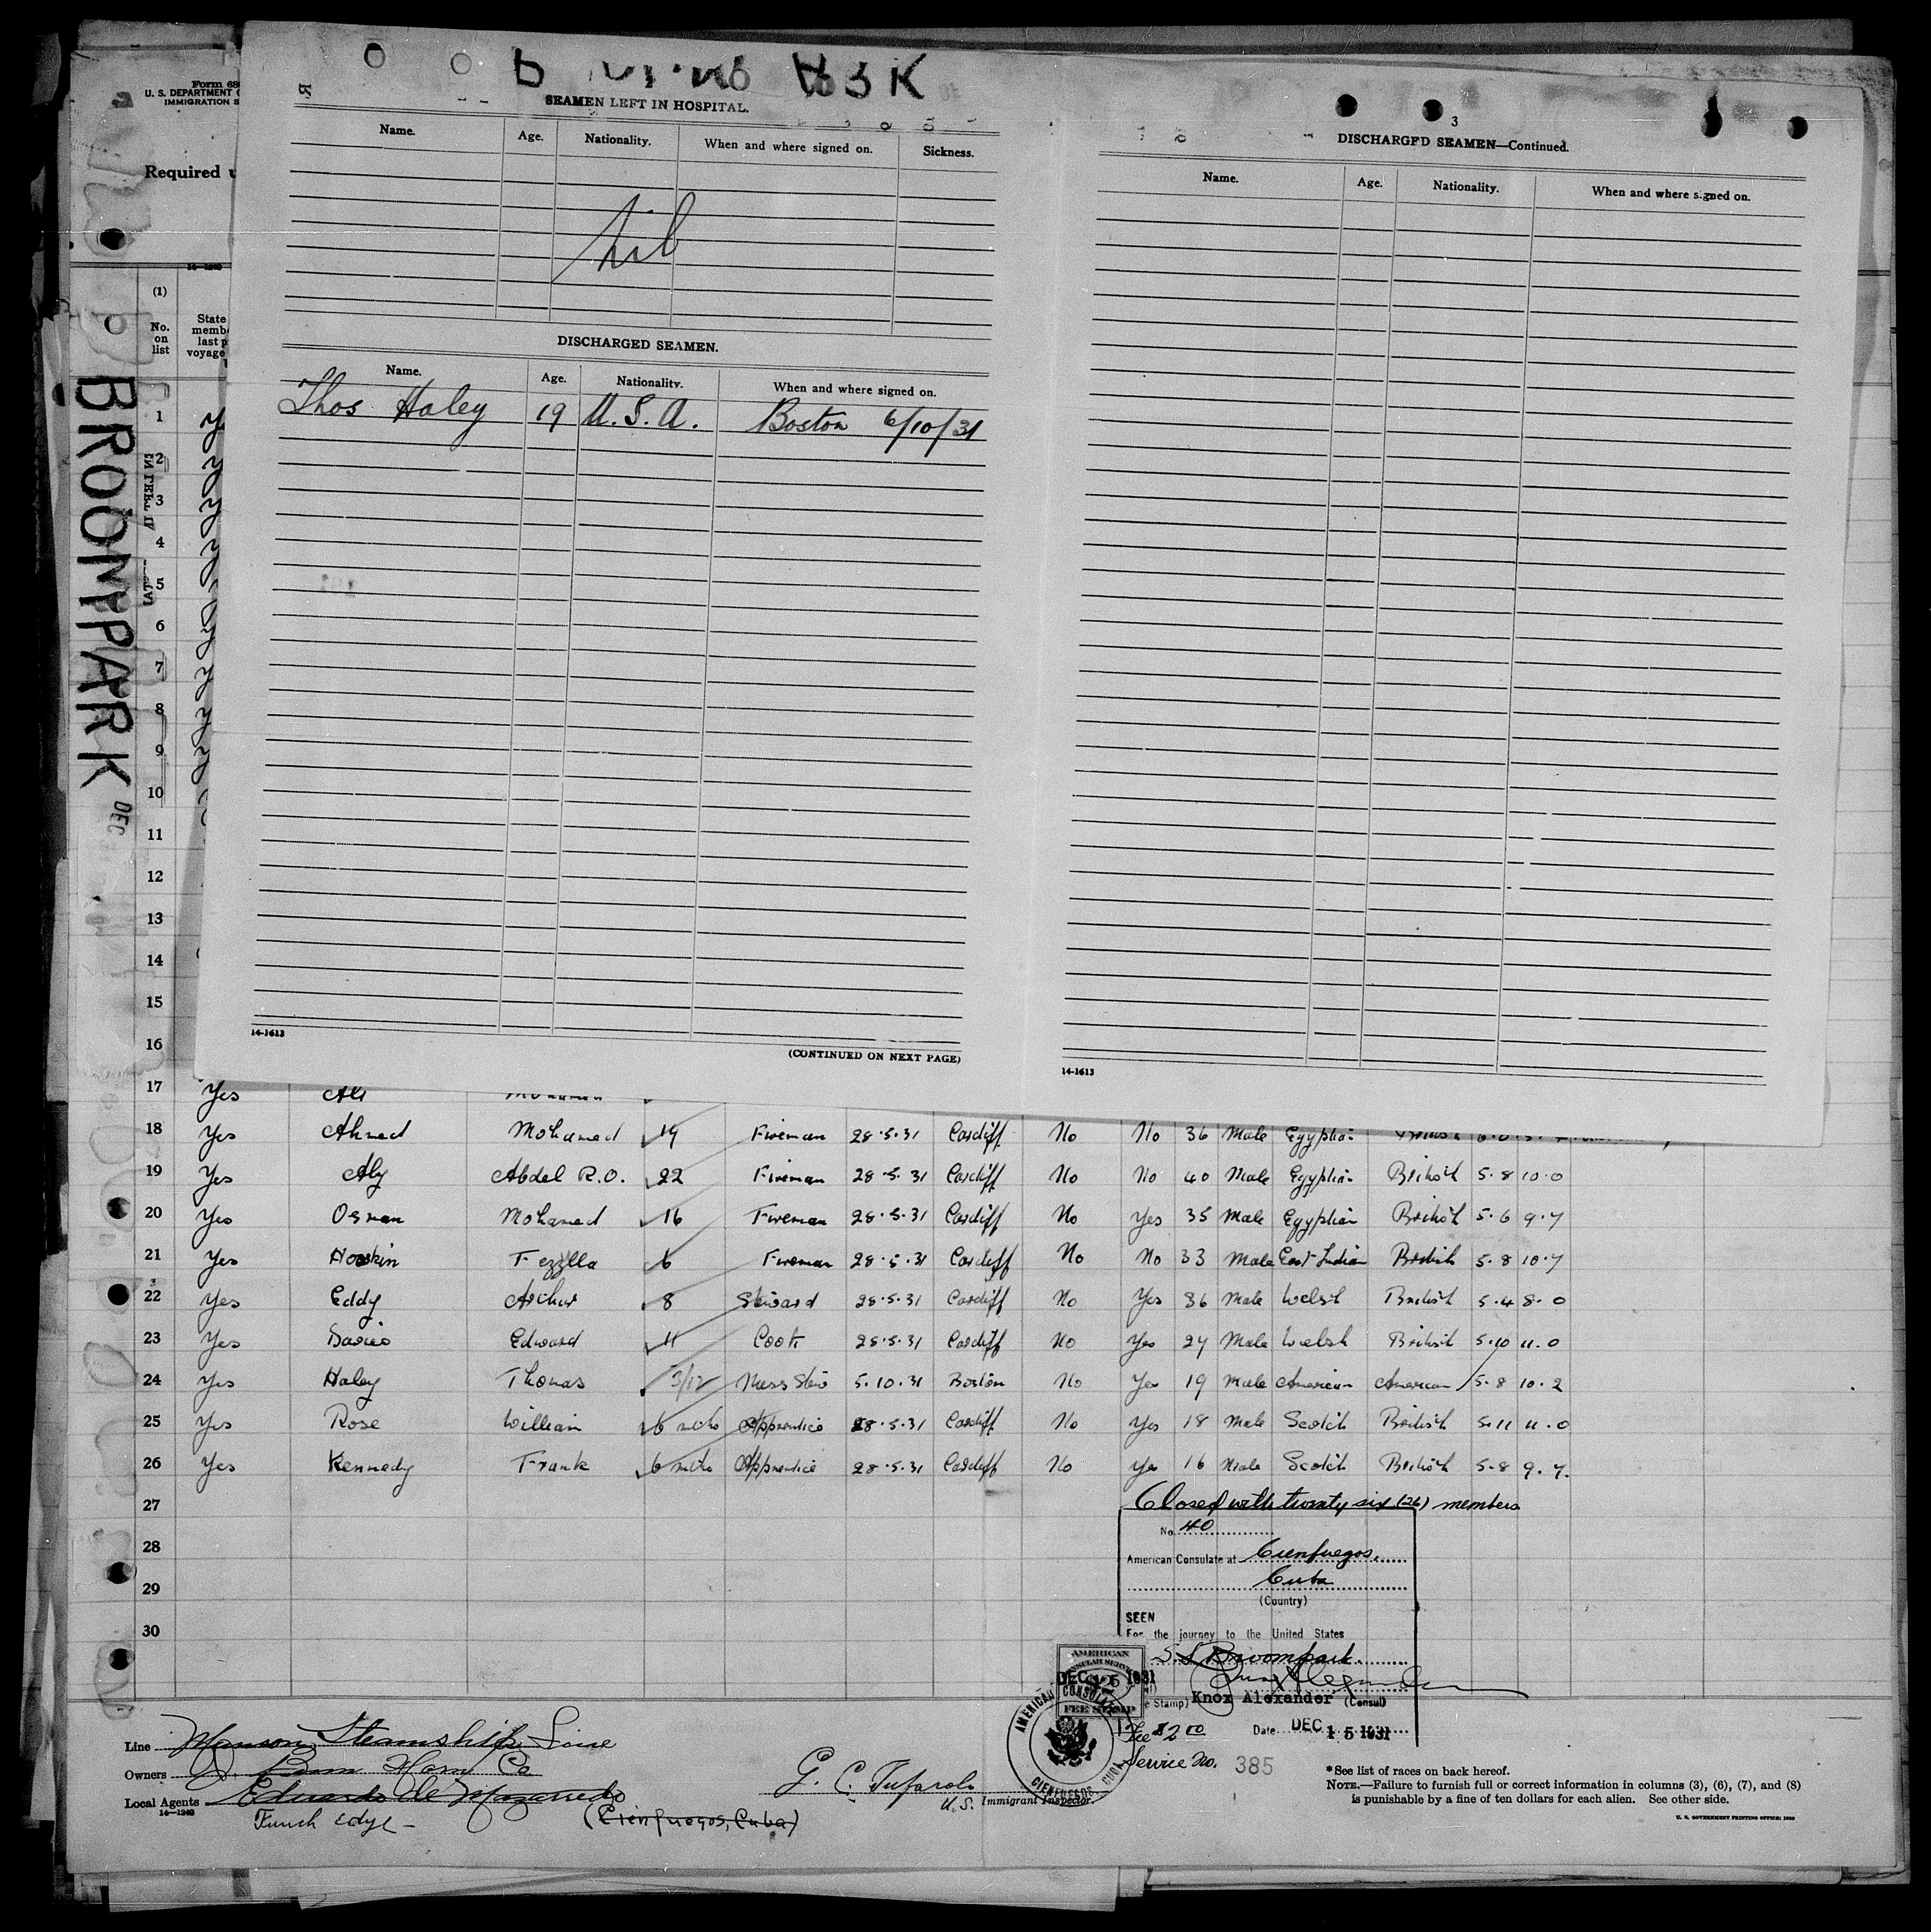 Form 68
U. S. DEPARTMENT
IMMIGRATION S
Required u
14-1240
BROOMPARK
DEC
(1)
No. on list
State
memb
last p
voyage
SEAMEN LEFT IN HOSPITAL.
Name. Age. Nationality. When and where signed on. Sickness.
Nil
DISCHARGED SEAMEN.
Name. Age. Nationality. When and where signed on.
Thos Haley 19 U.S.A. Boston 6/10/31
14-1613
(CONTINUED ON NEXT PAGE)
3
DISCHARGED SEAMEN—Continued.
Name. Age. Nationality. When and where signed on.
14-1613
1
2
3
4
5
6
7
8
9
10
11
12
13
14
15
16
17 Yes Ali
18 Yes Ahmed Mohamed 19 Fireman 28.5.31 Cardiff No No 36 Male Egyptian British
19 Yes Aly Abdel R.O. 22 Fireman 28.5.31 Cardiff No No 40 Male Egyptian British 5.8 10.0
20 Yes Osman Mohamed 16 Fireman 28.5.31 Cardiff No Yes 35 Male Egyptian British 5.6 9.7
21 Yes Hoskin Fezzlla 6 Fireman 28.5.31 Cardiff No No 33 Male East Indian British 5.8 10.7
22 Yes Eddy Arthur 8 Steward 28.5.31 Cardiff No Yes 36 Male Welsh British 5.4 8.0
23 Yes Davies Edward 11 Cook 28.5.31 Cardiff No Yes 27 Male Welsh British 5.10 11.0
24 Yes Haley Thomas 3/12 Mess Stew 5.10.31 Boston No Yes 19 Male American American 5.8 10.2
25 Yes Rose William 6 mths Apprentice 28.5.31 Cardiff No Yes 18 Male Scotch British 5.11 11.0
26 Yes Kennedy Frank 6 mths Apprentice 28.5.31 Cardiff No Yes 16 Male Scotch British 5.8 9.7.
27 Closed with twenty six (26) members
28
29
30
No. 40
American Consulate at Cienfuegos,
Cuba
(Country)
SEEN
For the journey to the United States
S.S. Broompark
Knox Alexander (Consul)
e Stamp)
AMERICAN
CONSULAR SERVICE
$2
FEE STAMP
DEC 15 1931
AMERICAN CONSULATE
CIENFUEGOS, CUBA
Fee $2.00 Date DEC 15 1931
Service No. 385
Line Munson Steamship Line
Owners
Local Agents Eduardo de Mazarredo
14-1240
Funch Edye - (Cienfuegos, Cuba)
G. C. Tufarolo
U.S. Immigrant Inspector.
*See list of races on back hereof.
NOTE.—Failure to furnish full or correct information in columns (3), (6), (7), and (8)
is punishable by a fine of ten dollars for each alien. See other side.
U. S. GOVERNMENT PRINTING OFFICE: 1930